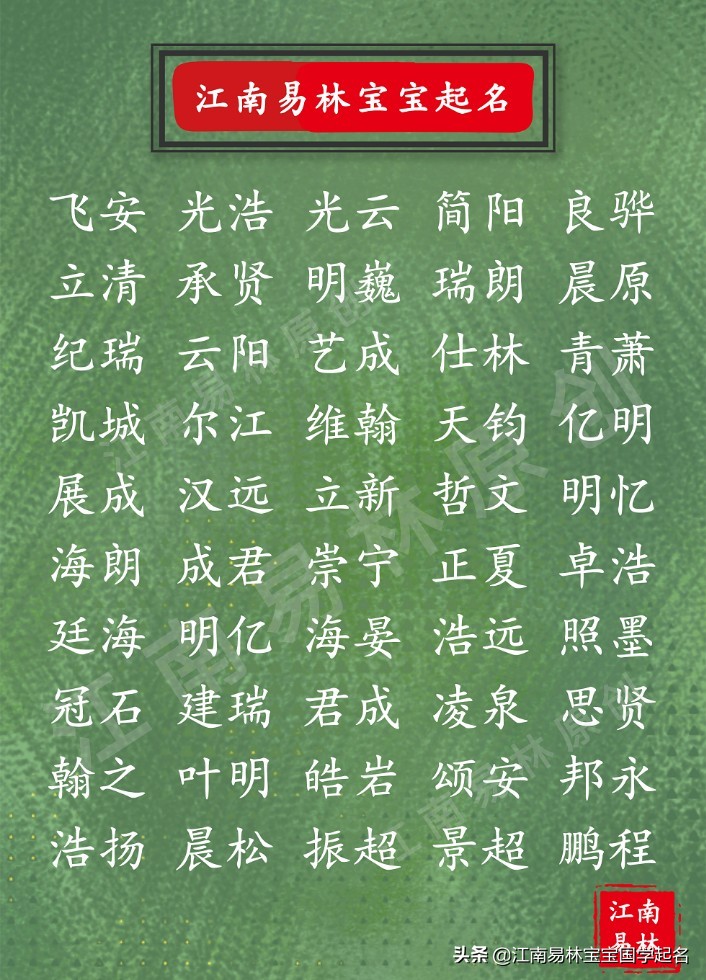 江南易林宝宝起名
飞安 光浩 光云 简阳 良骅
立清 承贤 明巍 瑞朗 晨原
纪瑞 云阳 艺成 仕林 青萧
凯城 尔江 维翰 天钧 亿明
展成 汉远 立新 哲文 明忆
海朗 成君 崇宁 正夏 卓浩
廷海 明亿 海晏 浩远 照墨
冠石 建瑞 君成 凌泉 思贤
翰之 叶明 皓岩 颂安 邦永
浩扬 晨松 振超 景超 鹏程
江南易林原创
江南易林原创
江南易林原创
江南
易林
头条 @江南易林宝宝国学起名